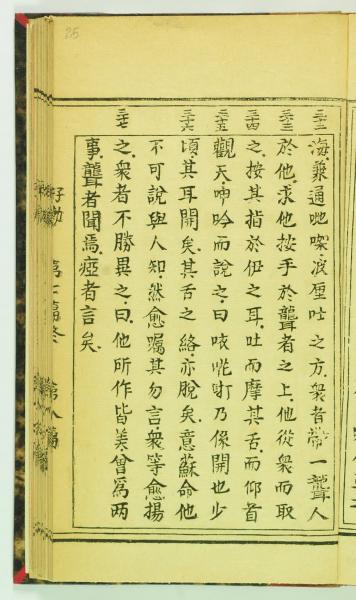 25
三十二
三十三
三十四
三十五
三十六
三十七
海兼通哋㗎波厘吐之方衆者帶一聾人
於他求他按手於聾者之上他從衆而取
之按其指於伊之耳吐而摩其舌而仰首
觀天呻吟而說之曰咦𠯢吖乃係開也少
頃其耳開矣其舌之絡亦脫矣意蘇命他
不可說與人知然愈囑其勿言衆等愈揚
之衆者不勝異之曰他所作皆美曾爲两
事聾者聞焉瘂者言矣
第七篇終
第八篇